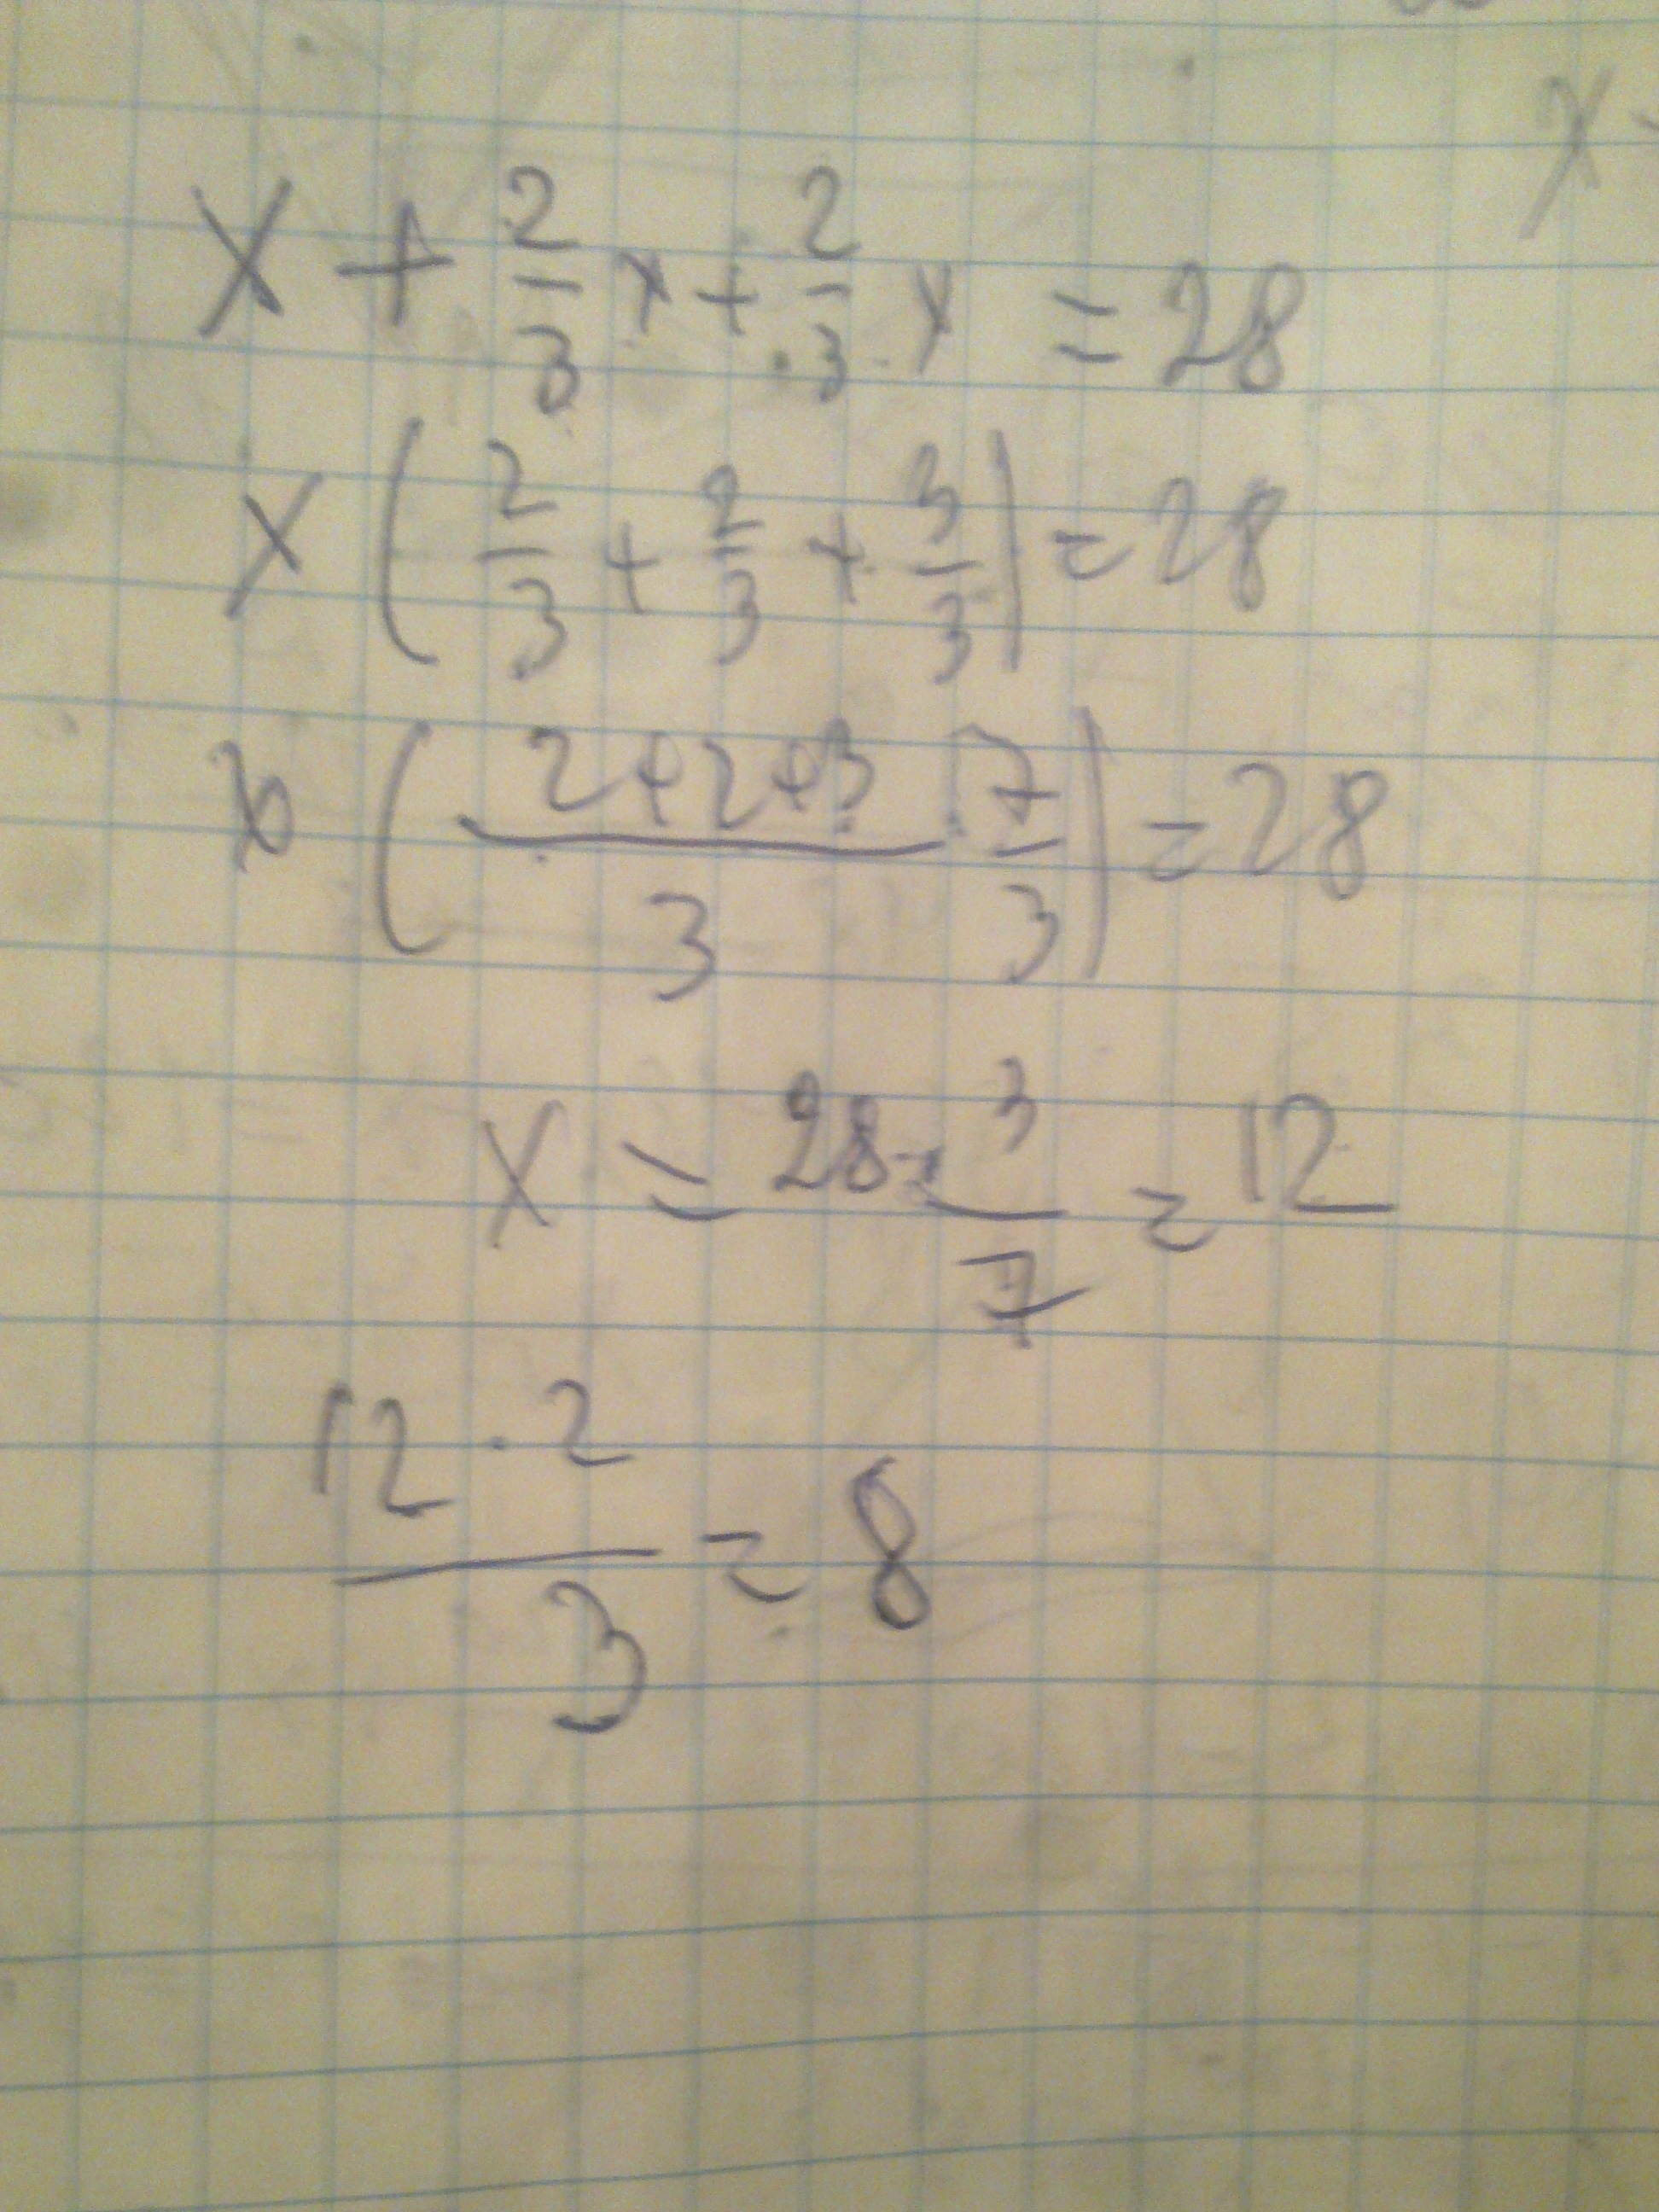 x + 2/3 x + 2/3 x = 28
x ( 2/3 + 2/3 + 3/3 ) = 28
x ( (2+2+3)/3 7/3 ) = 28
x = 28 · 3/7 = 12
(12 · 2)/3 = 8